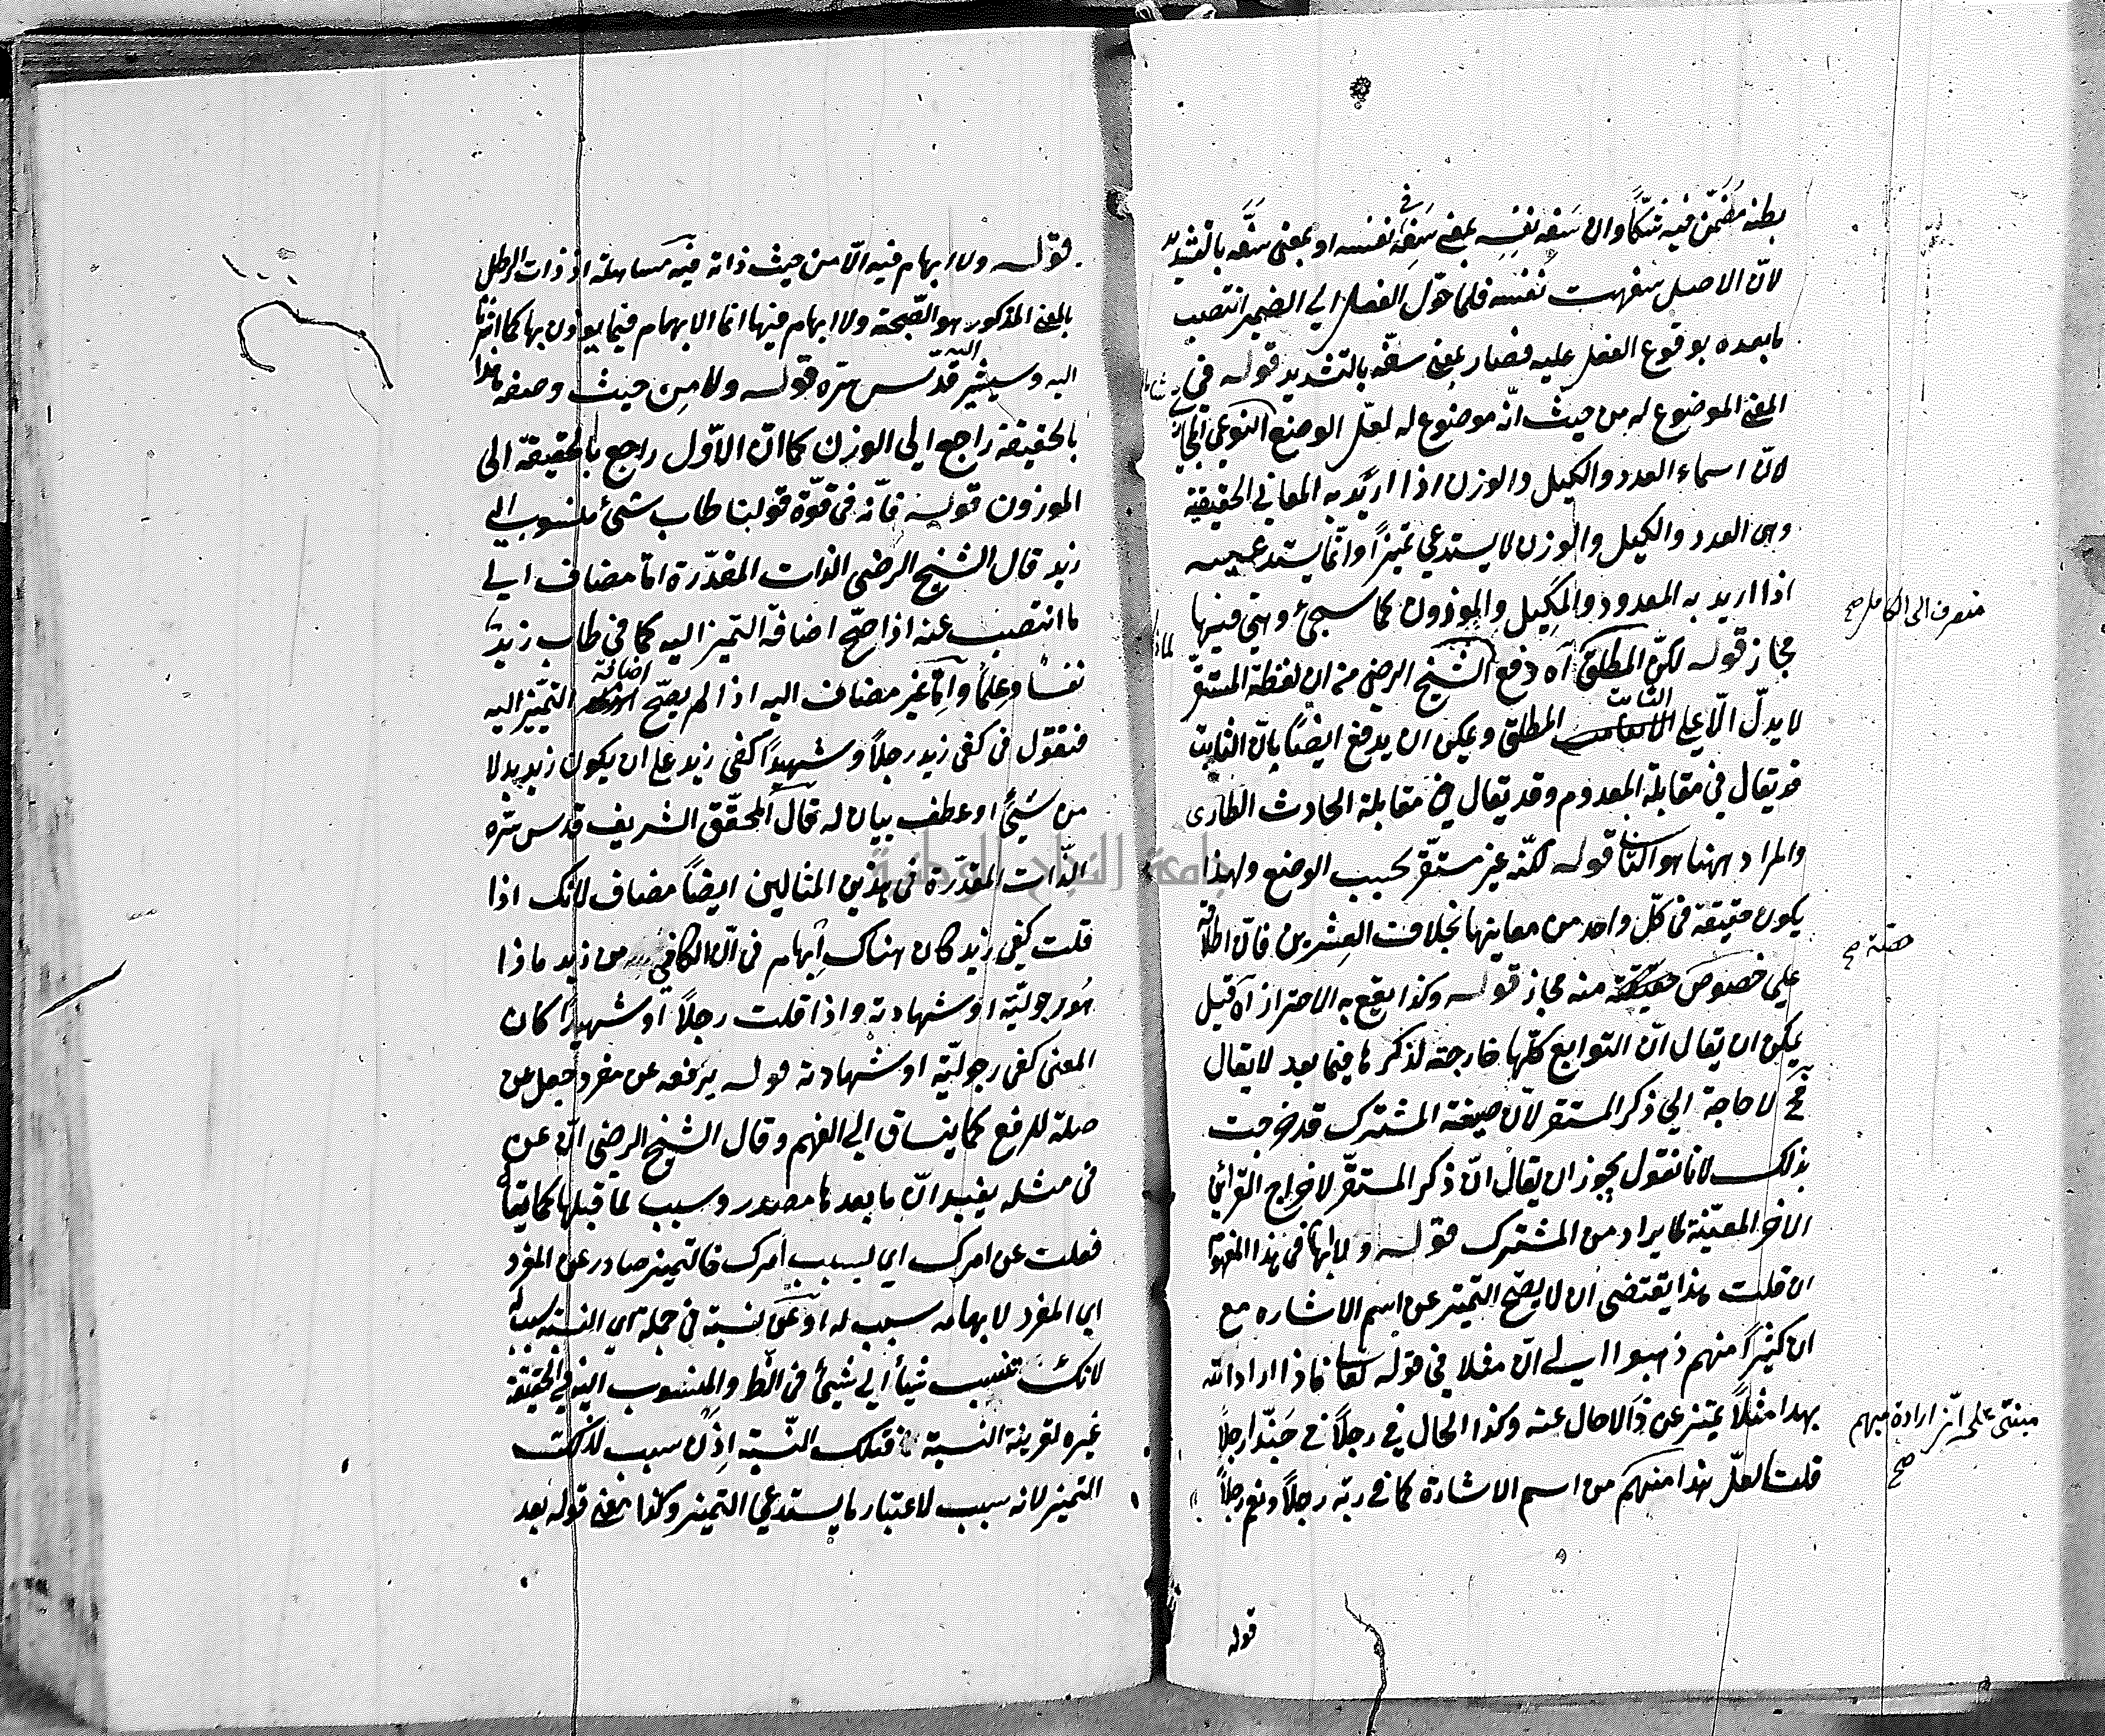 بطنه مُضمّن فيه شكا وان سَفه نفسه بمعنى سَفِه في نفسه او بمعنى سفّه بالتشديد
لانّ الاصل سفهت نفسه فلما حوّل الفعل الى الضمير انتصب
ما بعده بوقوع الفعل عليه فصار بمعنى سفّه بالتشديد قوله في
المعنى الموضوع له من حيث انّه موضوع له لعلّ الوضع النوعي
لانّ اسماء العدد والكيل والوزن اذا اريد به المعاني الحقيقية
وهى العدد والكيل والوزن لا يستدعي تميزاً وانّما يستدعيه
اذا اريد به المعدود والمكيل والموزون كما سيجئ وهي فيها
مجاز قوله لكنّ المطلق آه دفع الشيخ الرضي من ان لفظة المستقرّ
منصرف الى الكامل صح
لا يدلّ الّا على الثابت المطلق ويمكن ان يدفع ايضاً بانّ الثابت
قد يقال في مقابلة المعدوم وقد يقال في مقابلة الحادث الطارى
والمراد ههنا هو الثانى قوله لكنّه غير مستقّر بحسب الوضع ولهذا
يكون حقيقة فى كلّ واحد من معاينها بخلاف العِشرين فانّ اطلاقه
على خصوص حصّة منه مجاز قوله وكذا يقع به الاحتراز آه قيل
حصّة صح
يمكن ان يقال انّ التوابع كلّها خارجة لذكرها فيما بعد لا يقال
فح لا حاجة الى ذكر المستقر لانّ صيغة المشترك قد خرجت
بذلك لانا نقول يجوز ان يقال انّ ذكر المستقّر لاخراج القرائن
الاخر المعيّنة لما يراد من المشترك قوله ولا ابهام فى هذا المفهوم
ان قلت هذا يقتضى ان لا يصّح التميز عن اسم الاشاره مع
ان كثيراً منهم ذهبوا الى انّ مثلا في قوله تعالى ماذا اراد الله
بهذا مثلاً تميز عن ذا لا حال عنه وكذا الحال في رجلاً في حبّذا رجلاً
مبنىّ على انّ ارادة مبهم صح
قلت لعلّ هذا منهم من اسم الاشارة كما في ربّه رجلاً ونعم رجلاً
قوله
قوله ولا ابهام فيه الّا من حيث ذاته فيه مساهلة اذ ذات الرطل
بالمعنى المذكور هو الصّنجة ولا ابهام فيها انما الابهام فيما يوزن بها كما اشرنا
اليه وسيشير اليه قدّس سرّه قوله ولا من حيث وصفه هذا
بالحقيقة راجع الى الوزن كما انّ الاوّل راجع بالحقيقة الى
الموزون قوله فانّه فى قوّة قولنا طاب شئ منسوب الى
زيد قال الشيخ الرضي الذات المقدّرة امّا مضاف الى
ما انتصب عنه اذا صحّ اضافة التميز اليه كما في طاب زيد
نفسًا وعلماً وامّا غير مضاف اليه اذا لم يصحّ اضافة التميّز اليه
فنقول فى كفى زيد رجلاً وشهيداً كفى زيد على ان يكون زيد بدلا
من شئ او عطف بيان له قال المحقّق الشريف قدس سرّه
الذّات المقدّرة فى هذين المثالين ايضاً مضاف لانك اذا
قلت كفى زيد كان هناك اِبهام فى انّ الكافي من زيد ماذا
هُو رجوليّته او شهادته واذا قلت رجلاً او شهيدًا كان
المعنى كفى رجوليّته او شهادته قوله يرفعه عن مفرد جعل عن
صلة للرفع كما ينساق الى الفهم وقال الشيخ الرضي انّ عن
فى مثله يفيد انّ ما بعدها مصدر وسبب لما قبلها كما يقال
فعلت عن امرك اي بسبب امرك فالتميز صادر عن المفرد
اي المفرد لابهامه سبب له او عن نسبة فى جملة اي النسبة سبب له
لانك تنسب شيأ الى شئ فى الظ والمنسوب اليه فى الحقيقة
غيره لقرينة النسبة فتلك النّسبة اِذن سبب لذلك
التميز لانه سبب لاعتبار ما يستدعي التميز وكذا معنى قوله بعد